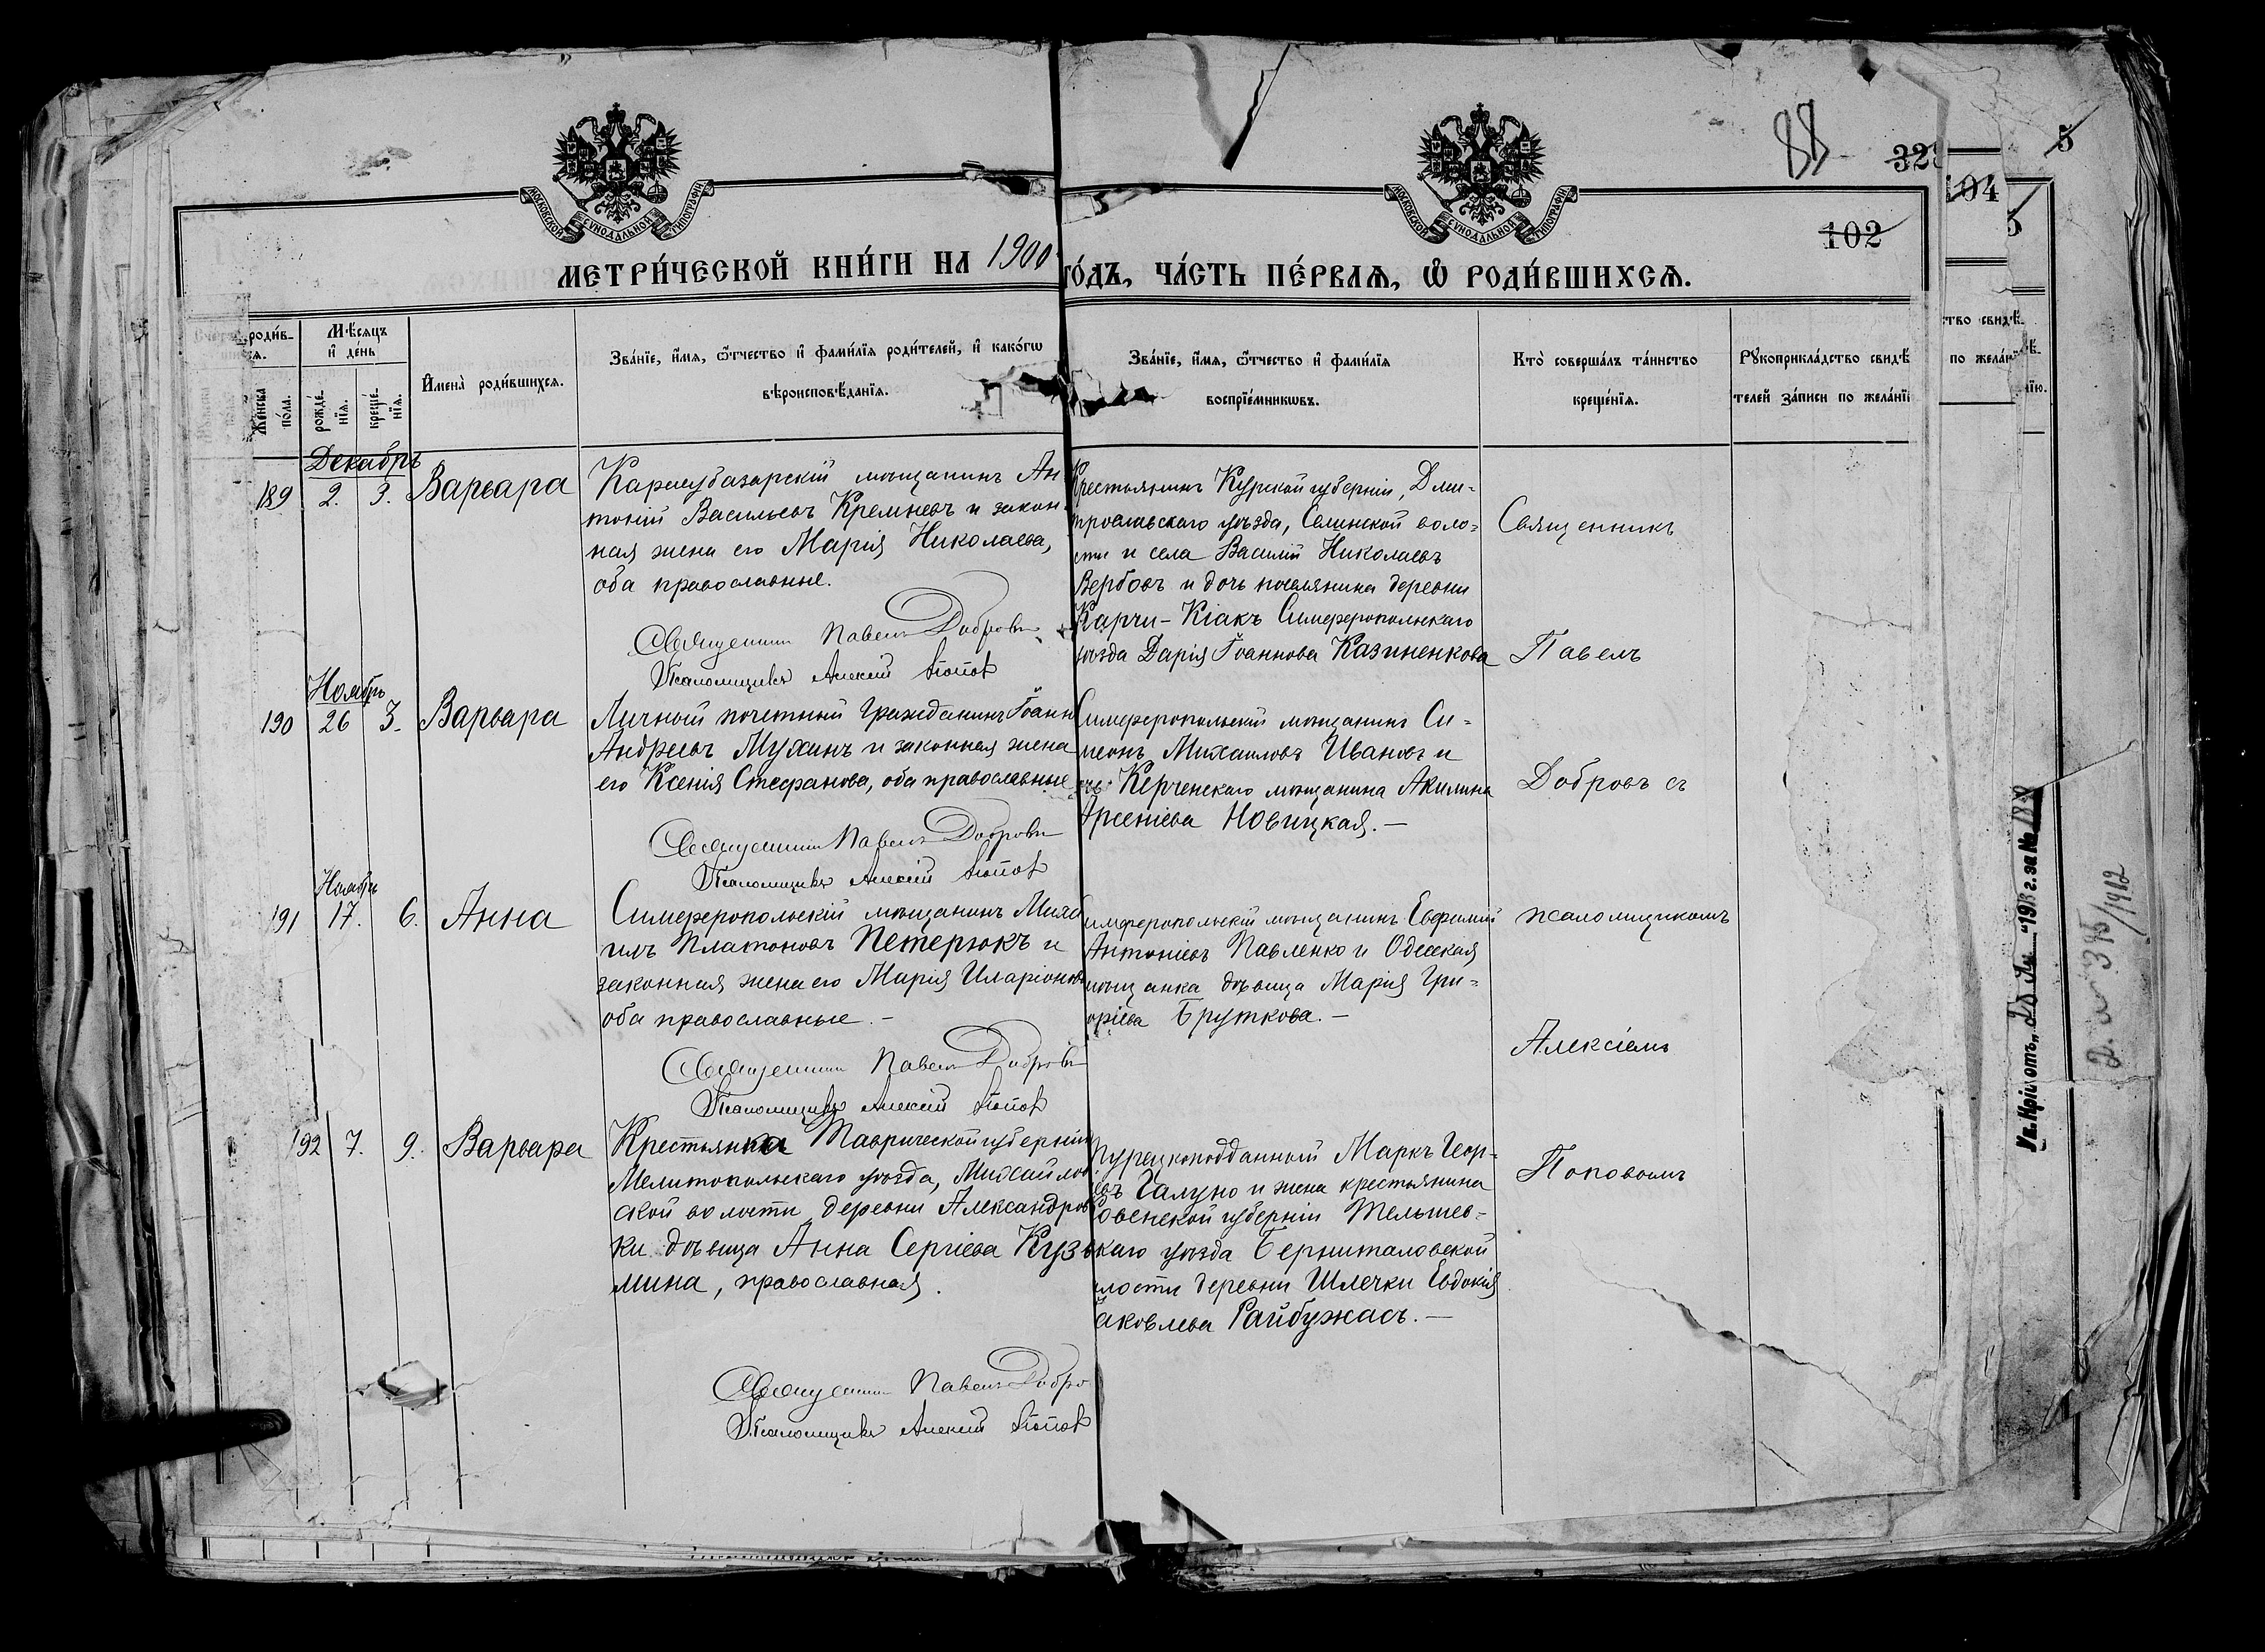 МОСКОВСКОЙ СУНОДАЛЬНОЙ ТИПОГРАФІИ
МОСКОВСКОЙ СУНОДАЛЬНОЙ ТИПОГРАФІИ
88
102
104
5
МЕТРИ́ЧЕСКОЙ КНИ́ГИ НА 1900 ГО́ДЪ, ЧА́СТЬ ПЕ́РВАѦ, Ѡ҆ РОДИ́ВШИХСѦ.
Мѣ́сѧцъ
и҆ де́нь
Же́нска по́ла.
рожде́нїѧ.
креще́нїѧ.
И҆мена̀ роди́вшихсѧ.
Зва́нїе, и҆́мѧ, ѻ҆́тчество и҆ фами́лїѧ роди́телей, и҆ како́гѡ
вѣроисповѣ́данїѧ.
Зва́нїе, и҆́мѧ, ѻ҆́тчество и҆ фами́лїѧ
воспрїе́мникѡвъ.
Кто̀ соверша́лъ та́инство
креще́нїѧ.
Рꙋкоприкла́дство свидѣ́
телей за́писи по жела́нїю
Декабрь
189 2. 3. Варвара
Карасубазарскій мѣщанинъ Ан
тоній Васильевъ Кремневъ и закон
ная жена его Марія Николаева,
оба православные.
Священникъ Павелъ Добровъ
Псаломщикъ Алексій Попов
Крестьянинъ Курской губерніи, Дми-
тровскаго уѣзда, Селинской воло-
сти и села Василій Николаевъ
Вербовъ и дочь поселянина деревни
Карчи-Кіакъ Симферопольскаго
уѣзда Дарія Іоаннова Казиненкова
Священникъ
Павелъ
Добровъ съ
псаломщикомъ
Алексіемъ
Поповымъ
Ноябрь
190 26 3. Варвара
Личный почетный гражданинъ Іоанн
Андреевъ Мухинъ и законная жена
его Ксенія Стефанова, оба православные
Священникъ Павелъ Добровъ
Псаломщикъ Алексій Попов
Симферопольскій мѣщанинъ Си-
меонъ Михаиловъ Ивановъ и
Керченскаго мѣщанина Акилина
Арсеніева Новицкая.—
Ноябрь
191 17. 6. Анна
Симферопольскій мѣщанинъ Миха
илъ Платоновъ Петерюкъ и
законная жена его Марія Иларіонова
оба православные.—
Священникъ Павелъ Добровъ
Псаломщикъ Алексій Попов
Симферопольскій мѣщанинъ Евфимій
Антоніевъ Павленко и Одесская
мѣщанка дѣвица Марія Гри-
оріева Бруткова.—
192 7. 9. Варвара
Крестьянка Таврической губерніи
Мелитопольскаго уѣзда, Михайлов
ской волости деревни Александров
ки дѣвица Анна Сергіева Кузь
мина, православная.
Священникъ Павелъ Добро
Псаломщикъ Алексій Попов
Турецкоподданный Маркъ Геор-
евъ Галуно и жена крестьянина
Ковенской губерніи Тельшев-
скаго уѣзда
лости деревни Шлечки Евдокія
Іаковлева Райбужасъ.—
1912